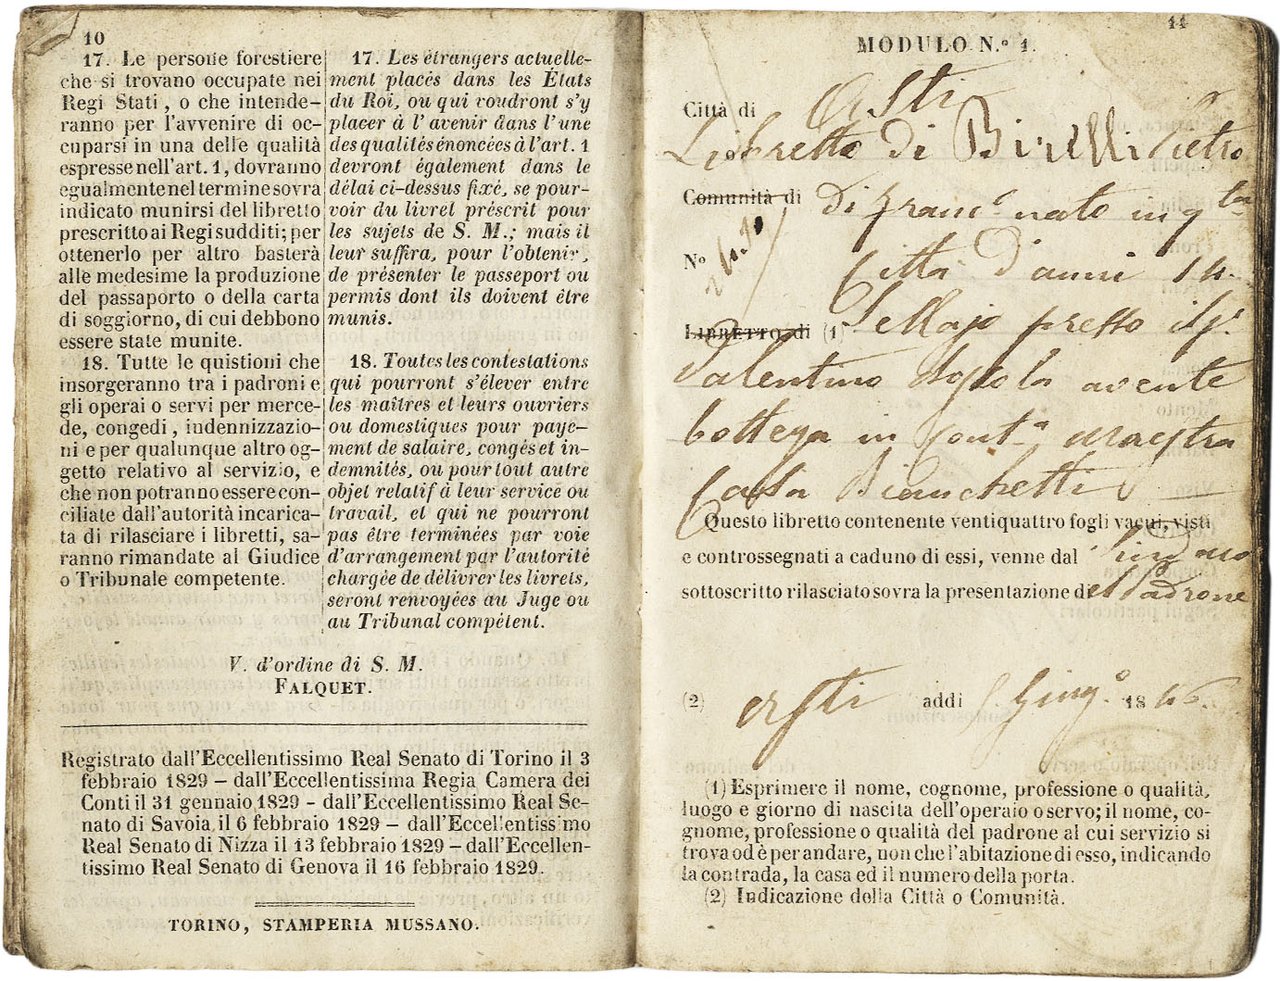 10
17. Le persone forestiere
che si trovano occupate nei
Regi Stati, o che intende-
ranno per l'avvenire di oc-
cuparsi in una delle qualità
espresse nell'art. 1, dovranno
egualmente nel termine sovra
indicato munirsi del libretto
prescritto ai Regi sudditi; per
ottenerlo per altro basterà
alle medesime la produzione
del passaporto o della carta
di soggiorno, di cui debbono
essere state munite.
18. Tutte le quistioni che
insorgeranno tra i padroni e
gli operai o servi per merce-
de, congedi, indennizzazio-
ni e per qualunque altro og-
getto relativo al servizio, e
che non potranno essere con-
ciliate dall'autorità incarica-
ta di rilasciare i libretti, sa-
ranno rimandate al Giudice
o Tribunale competente.
17. Les étrangers actuelle-
ment placés dans les États
du Roi, ou qui voudront s'y
placer à l'avenir dans l'une
des qualités énoncées à l'art. 1
devront également dans le
délai ci-dessus fixé, se pour-
voir du livret préscrit pour
les sujets de S. M.; mais il
leur suffira, pour l'obtenir,
de présenter le passeport ou
permis dont ils doivent être
munis.
18. Toutes les contestations
qui pourront s'élever entre
les maîtres et leurs ouvriers
ou domestiques pour paye-
ment de salaire, congés et in-
demnités, ou pour tout autre
objet relatif à leur service ou
travail, et qui ne pourront
pas être terminées par voie
d'arrangement par l'autorité
chargée de délivrer les livrets,
seront renvoyées au Juge ou
au Tribunal compétent.
V. d'ordine di S. M.
FALQUET.
Registrato dall'Eccellentissimo Real Senato di Torino il 3
febbraio 1829 – dall'Eccellentissima Regia Camera dei
Conti il 31 gennaio 1829 – dall'Eccellentissimo Real Se-
nato di Savoia il 6 febbraio 1829 – dall'Eccellentissimo
Real Senato di Nizza il 13 febbraio 1829 – dall'Eccellen-
tissimo Real Senato di Genova il 16 febbraio 1829.
TORINO, STAMPERIA MUSSANO.
11
MODULO N.º 1.
Città di Asti
Libretto di Birelli Pietro
Comunità di di Franc.º nato in q.ta
Nº Città d'anni 14.
LIBRETTO di (1) Sellajo presso il Sr.
Valentino avente
bottega in Cont.a maestra
Casa Bianchetti
Questo libretto contenente ventiquattro fogli vacui, visti
e controssegnati a caduno di essi, venne dal Sindaco
sottoscritto rilasciato sovra la presentazione del Padrone
(2) Asti addì Giug.º 1846.
(1) Esprimere il nome, cognome, professione o qualità,
luogo e giorno di nascita dell'operaio o servo; il nome, co-
gnome, professione o qualità del padrone al cui servizio si
trova od è per andare, non che l'abitazione di esso, indicando
la contrada, la casa ed il numero della porta.
(2) Indicazione della Città o Comunità.